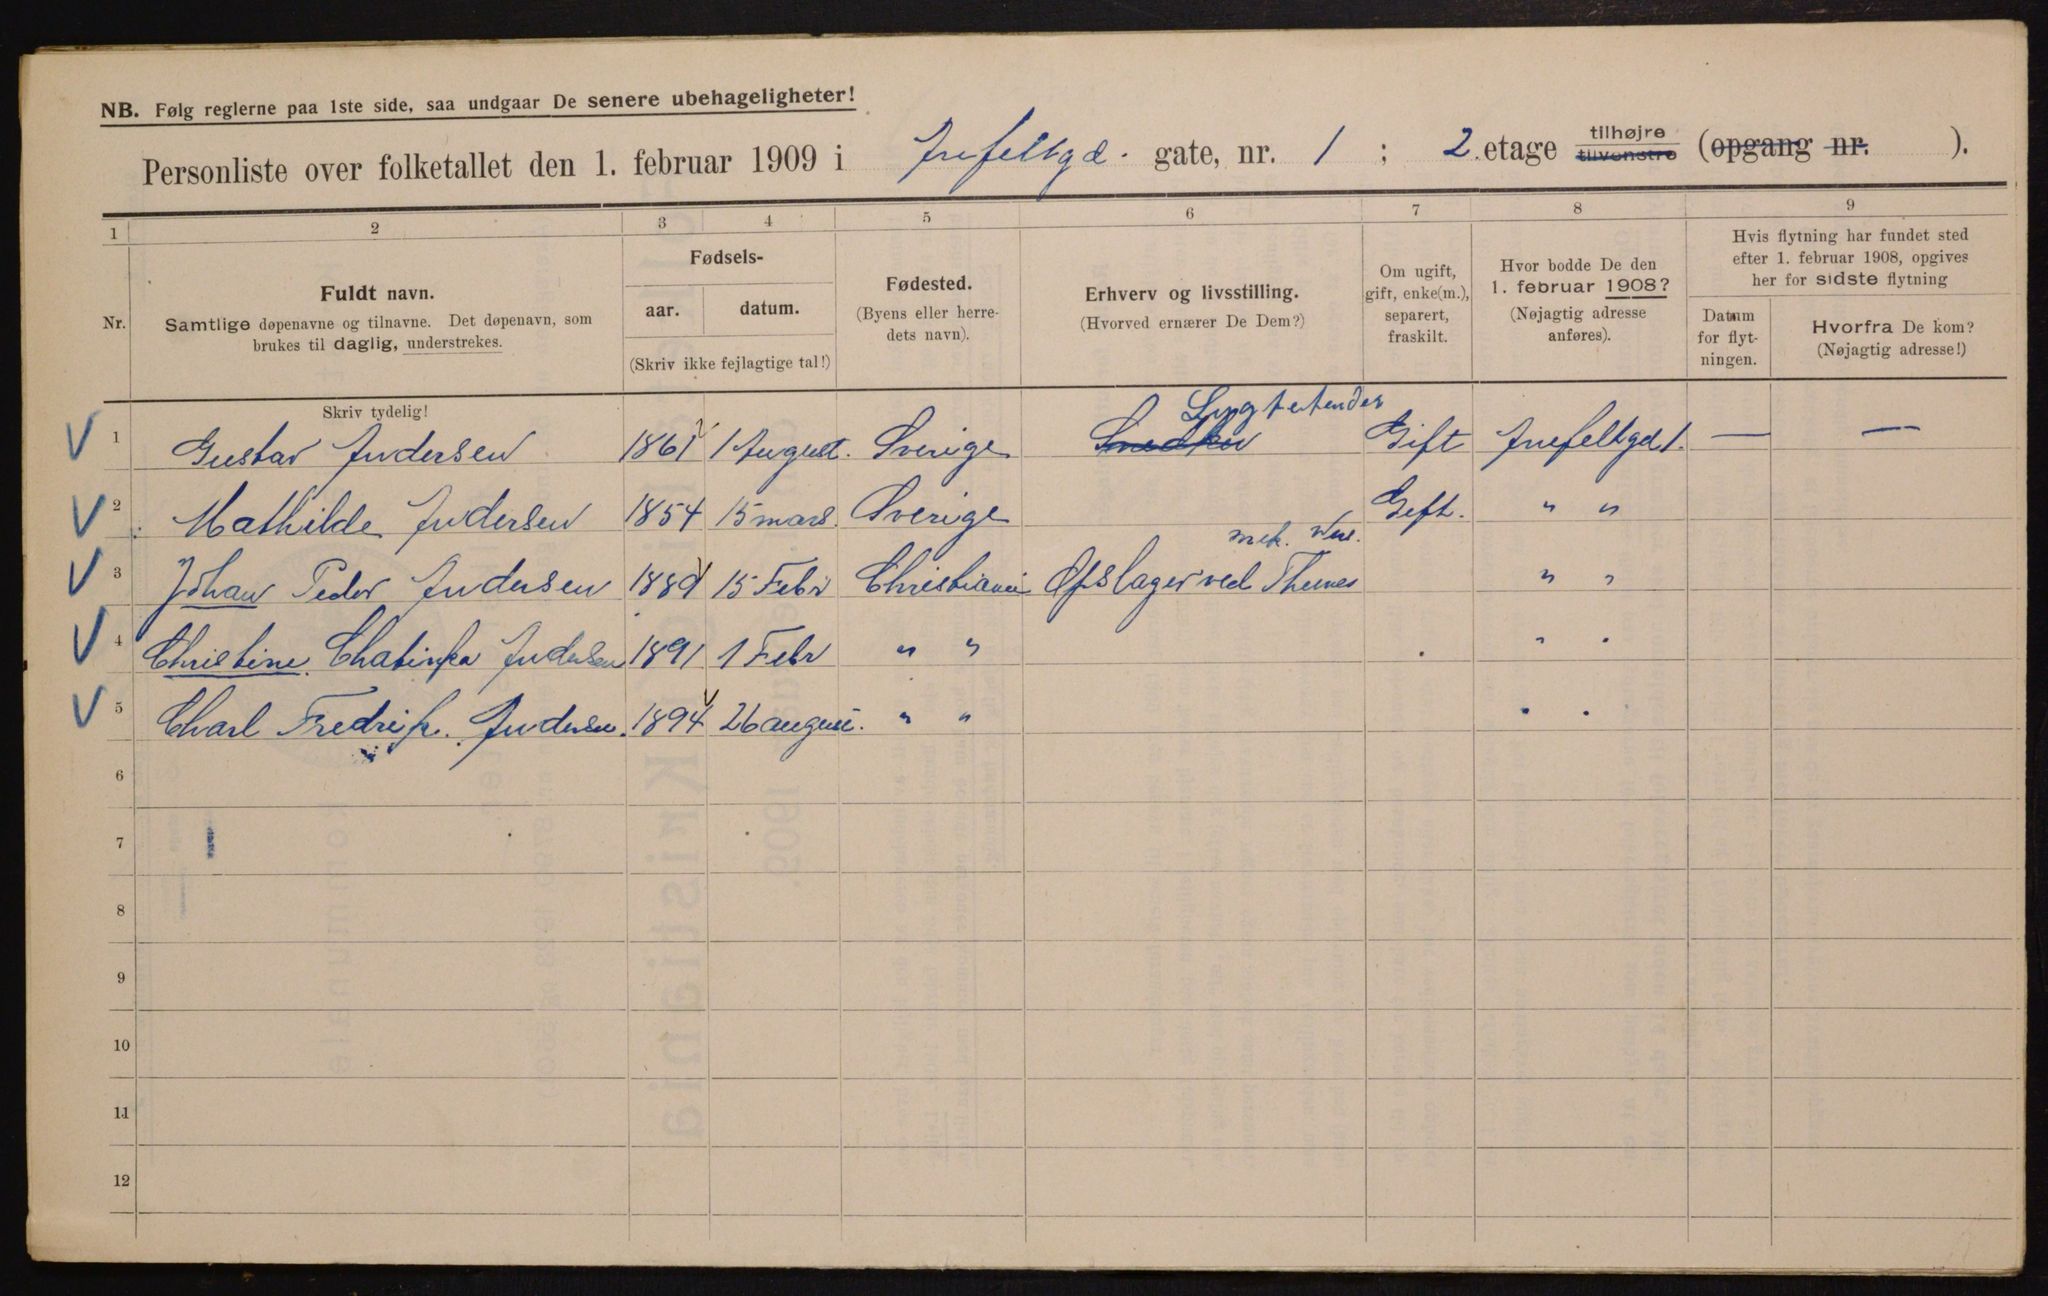 NB. Følg reglerne paa 1ste side, saa undgaar De senere ubehageligheter!
Personliste over folketallet den 1. februar 1909 i Tuefeltgd. gate, nr. 1 ; 2. etage tilhøjre tilvenstre (opgang nr. ).
1 2 3 4 5 6 7 8 9
Nr.
Fuldt navn.
Samtlige døpenavne og tilnavne. Det døpenavn, som
brukes til daglig, understrekes.
Fødsels-
aar. datum.
(Skriv ikke fejlagtige tal!)
Fødested.
(Byens eller herre-
dets navn).
Erhverv og livsstilling.
(Hvorved ernærer De Dem?)
Om ugift,
gift, enke(m.),
separert,
fraskilt.
Hvor bodde De den
1. februar 1908?
(Nøjagtig adresse
anføres).
Hvis flytning har fundet sted
efter 1. februar 1908, opgives
her for sidste flytning
Datum
for flyt-
ningen.
Hvorfra De kom?
(Nøjagtig adresse!)
Skriv tydelig!
Lygtetender
V 1 Gustav Andersen 1861 1 August. Sverige Snedker Gift Tuefeltgd 1. — —
V 2 Mathilde Andersen 1854 15 mars. Sverige Gift. " "
mek. Verk.
V 3 Johan Peder Andersen 1889 15 Febr Christiania Opslager ved Thunes " "
V 4 Christine Chatinka Andersen 1891 1 Febr " " " "
V 5 Charl Fredrik. Andersen. 1894 26 august. " " " "
6
7
8
9
10
11
12